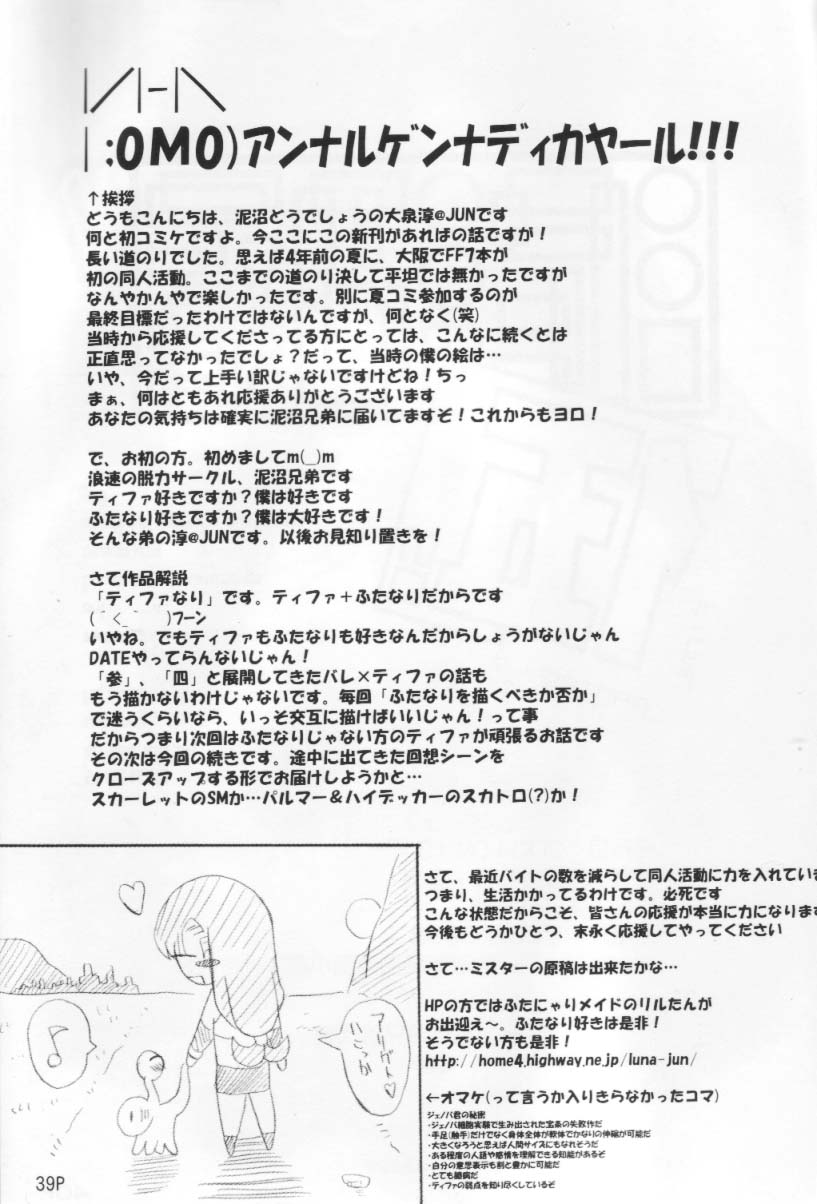 |／|-|＼
| :OMO)アンナルゲンナディカヤール!!!
↑挨拶
どうもこんにちは、泥沼どうでしょうの大泉淳@JUNです
何と初コミケですよ。今ここにこの新刊があればの話ですが！
長い道のりでした。思えば4年前の夏に、大阪でFF7本が
初の同人活動。ここまでの道のり決して平坦では無かったですが
なんやかんやで楽しかったです。別に夏コミ参加するのが
最終目標だったわけではないんですが、何となく(笑)
当時から応援してくださってる方にとっては、こんなに続くとは
正直思ってなかったでしょ？だって、当時の僕の絵は…
いや、今だって上手い訳じゃないですけどね！ちっ
まぁ、何はともあれ応援ありがとうございます
あなたの気持ちは確実に泥沼兄弟に届いてますぞ！これからもヨロ！
で、お初の方。初めましてm(__)m
浪速の脱力サークル、泥沼兄弟です
ティファ好きですか？僕は好きです
ふたなり好きですか？僕は大好きです！
そんな弟の淳@JUNです。以後お見知り置きを！
さて作品解説
「ティファなり」です。ティファ＋ふたなりだからです
(´<_`　)ﾌｰﾝ
いやね。でもティファもふたなりも好きなんだからしょうがないじゃん
DATEやってらんないじゃん！
「参」、「四」と展開してきたバレ×ティファの話も
もう描かないわけじゃないです。毎回「ふたなりを描くべきか否か」
で迷うくらいなら、いっそ交互に描けばいいじゃん！って事
だからつまり次回はふたなりじゃない方のティファが頑張るお話です
その次は今回の続きです。途中に出てきた回想シーンを
クローズアップする形でお届けしようかと…
スカーレットのSMか…パルマー＆ハイデッカーのスカトロ(？)か！
さて、最近バイトの数を減らして同人活動に力を入れていま
つまり、生活かかってるわけです。必死です
こんな状態だからこそ、皆さんの応援が本当に力になります
今後もどうかひとつ、末永く応援してやってください
さて…ミスターの原稿は出来たかな…
HPの方ではふたにゃりメイドのリルたんが
お出迎え～。ふたなり好きは是非！
そうでない方も是非！
http://home4.highway.ne.jp/luna-jun/
←オマケ(って言うか入りきらなかったコマ)
ジェノバ君の秘密
・ジェノバ細胞実験で生み出された宝条の失敗作だ
・手足(触手)だけでなく身体全体が軟体でかなりの伸縮が可能だ
・大きくなろうと思えば人間サイズにもなれそうだ
・ある程度の人語や感情を理解できる知能があるぞ
・自分の意思表示も割と豊かに可能だ
・とても臆病だ
・ティファの弱点を知り尽くしているぞ
♪
39P